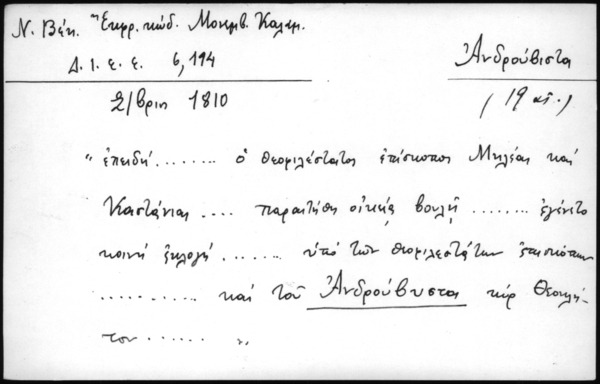 Ν. Βέη. Ἐκφρ. κώδ. Μονεμβ. Καλαμ.
Δ. Ι. Ε. Ε. 6, 194
Ἀνδρούβιστα
2/βρίη 1810
(19 αἰ.)
"ἐπειδή........ ὁ θεοφιλέστατος ἐπίσκοπος Μηλέας καὶ
Καστάνιας .... παραιτήθη οἰκείᾳ βουλῇ ........ ἐγένετο
κοινὴ ἐκλογὴ ....... ὑπὸ τῶν θεοφιλεστάτων ἐπισκόπων
........... καὶ τοῦ Ἀνδρούβυστας κὺρ Θεοκλή-
του ...... "